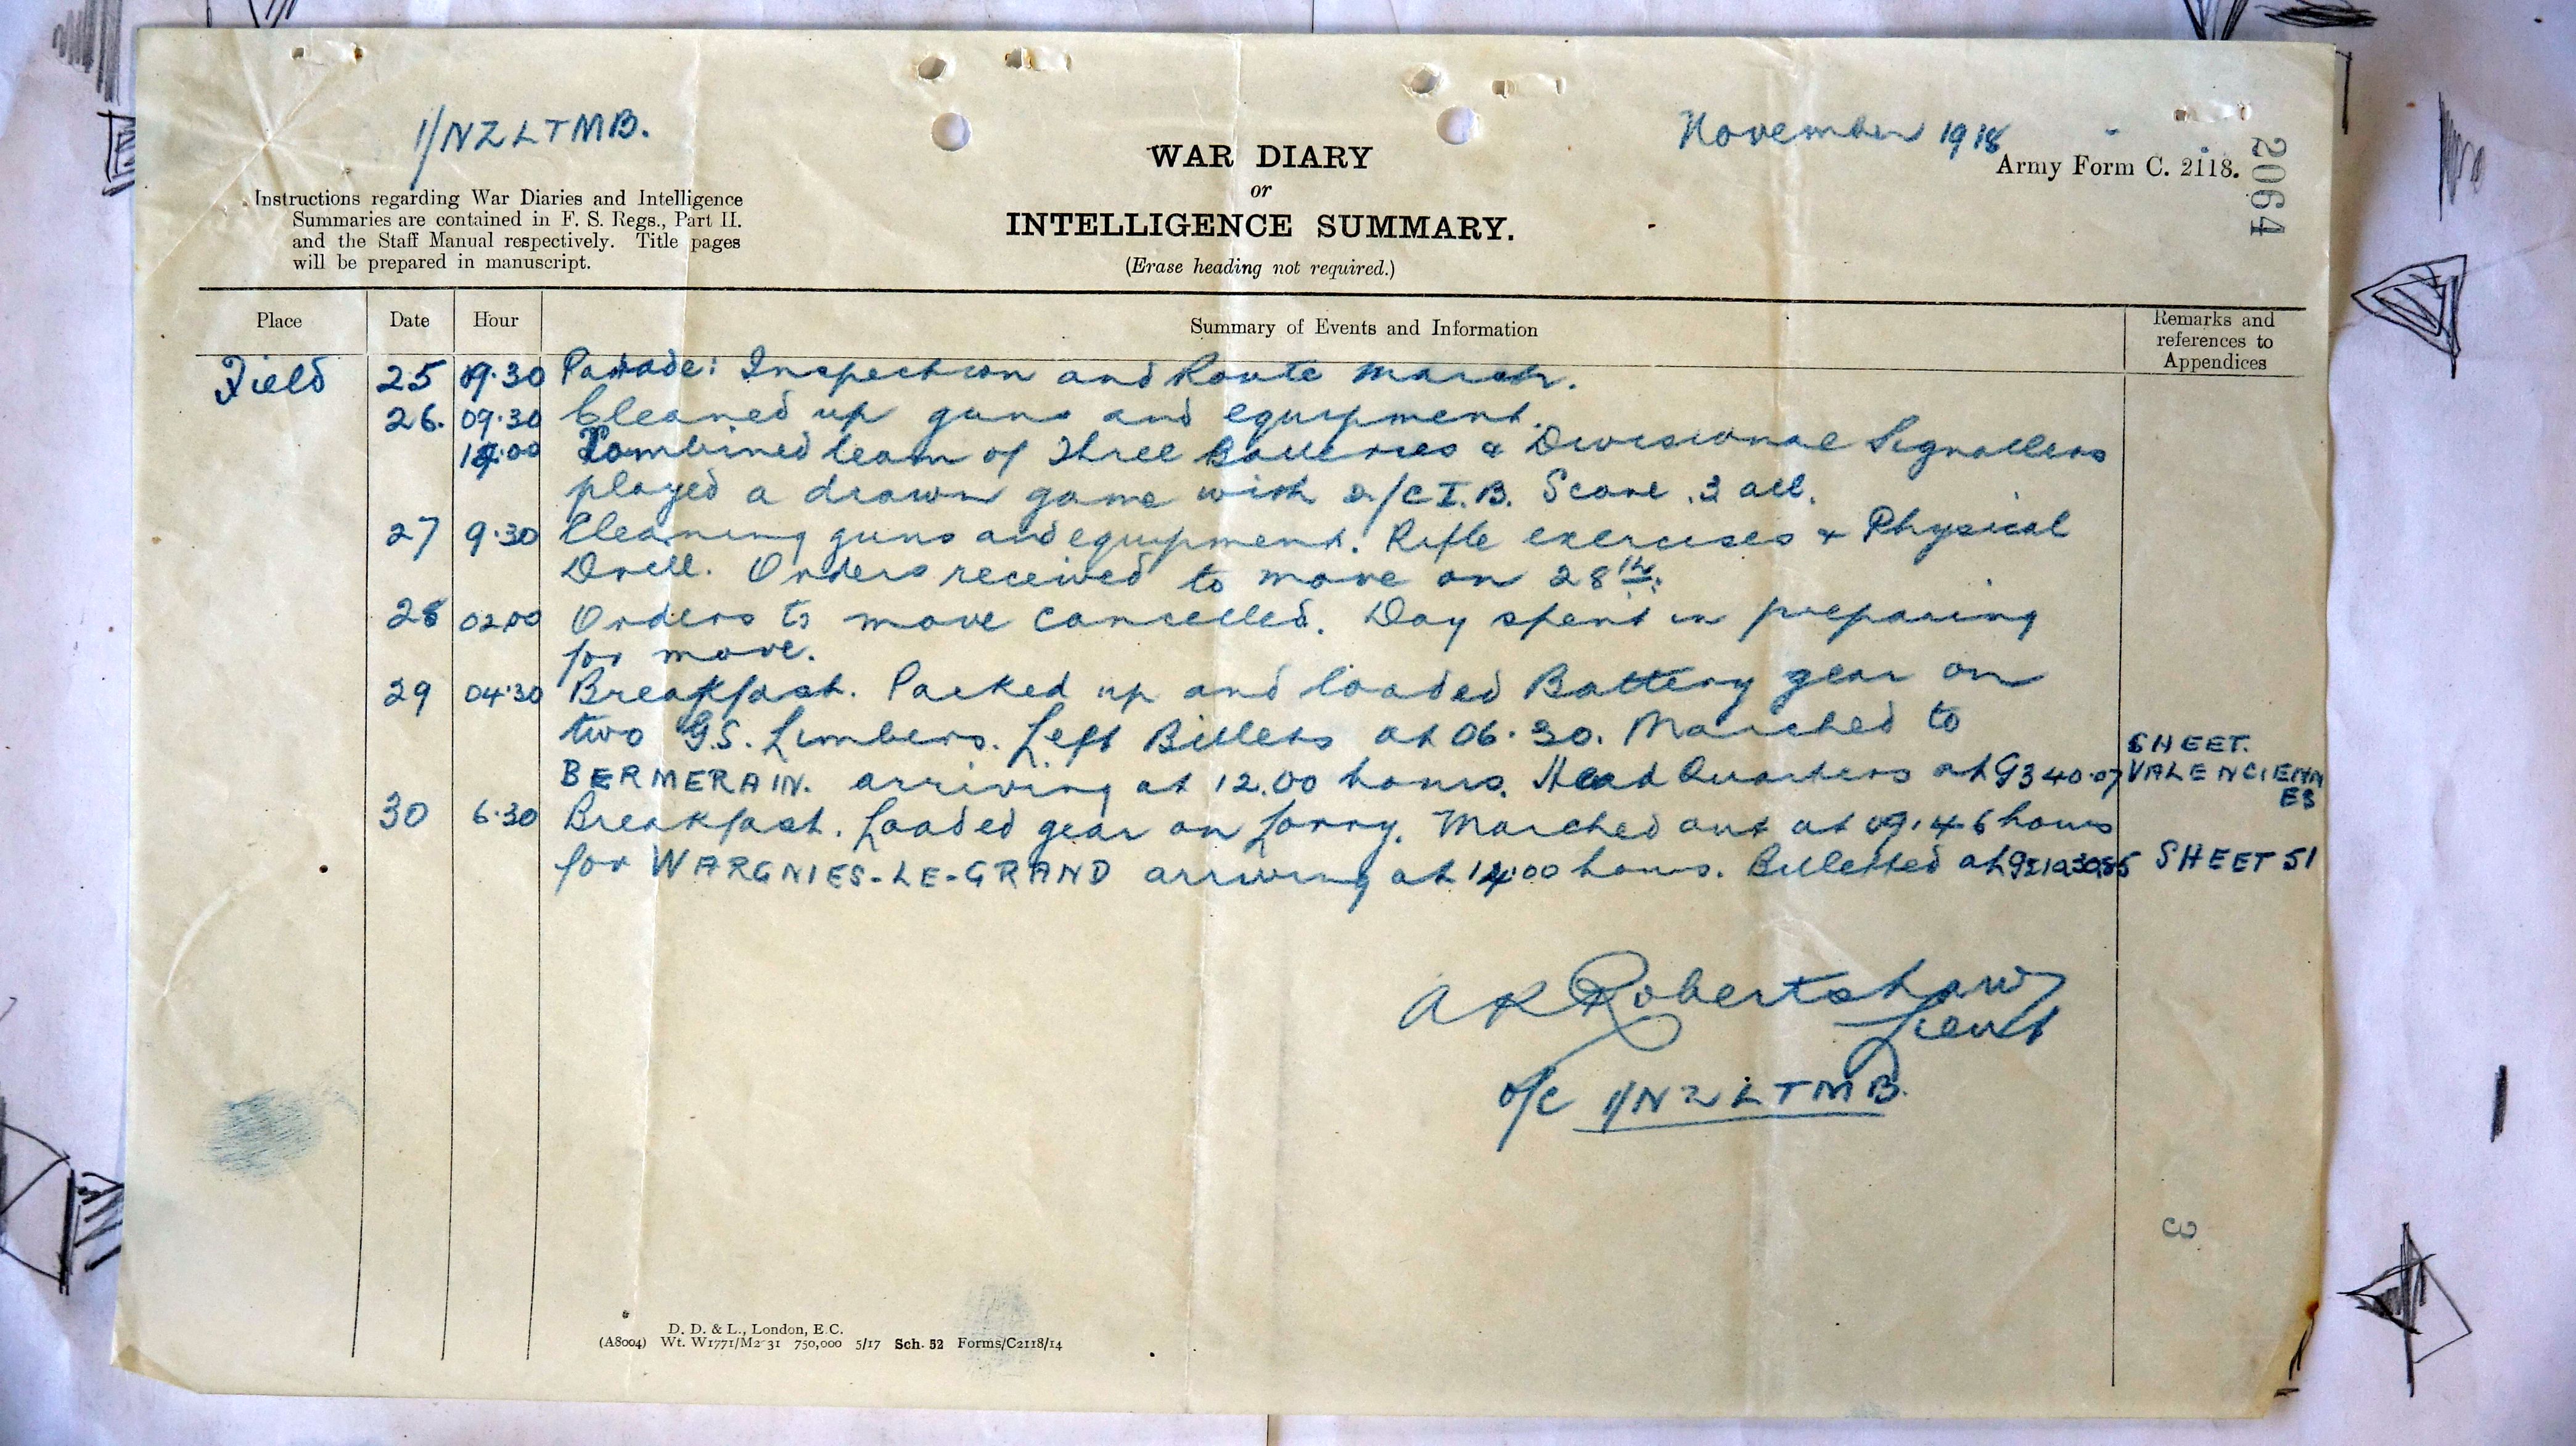 1/NZLTMB.
November 1918
Army Form C. 2118.
2064
WAR DIARY
or
INTELLIGENCE SUMMARY.
(Erase heading not required.)
Instructions regarding War Diaries and Intelligence
Summaries are contained in F. S. Regs., Part II.
and the Staff Manual respectively. Title pages
will be prepared in manuscript.
Place Date Hour Summary of Events and Information Remarks and references to Appendices
Field 25 09.30 Parade: Inspection and Route march.
26. 09.30 Cleaned up guns and equipment.
14.00 Combined team of Three Batteries & Divisional Signallers
played a drawn game with 2/C.I.B. Score 3 all.
27 9.30 Cleaning guns and equipment. Rifle exercises & Physical
Drill. Orders received to move on 28th.
28 02.00 Orders to move cancelled. Day spent in preparing
for move.
29 04.30 Breakfast. Packed up and loaded Battery gear on
two G.S. Limbers. Left Billets at 06.30. Marched to
BERMERAIN. arriving at 12.00 hours. Head Quarters at SHEET. VALENCIENNES
30 6.30 Breakfast. Loaded gear on Lorry. Marched out at 09.46 hours
for WARGNIES-LE-GRAND arriving at 14.00 hours. Billetted at SHEET 51
A K Robertshaw
Lieut
o/c 1/NZLTMB.
3
D. D. & L., London, E.C.
(A8004) Wt. W1771/M2 31 750,000 5/17 Sch. 52 Forms/C2118/14